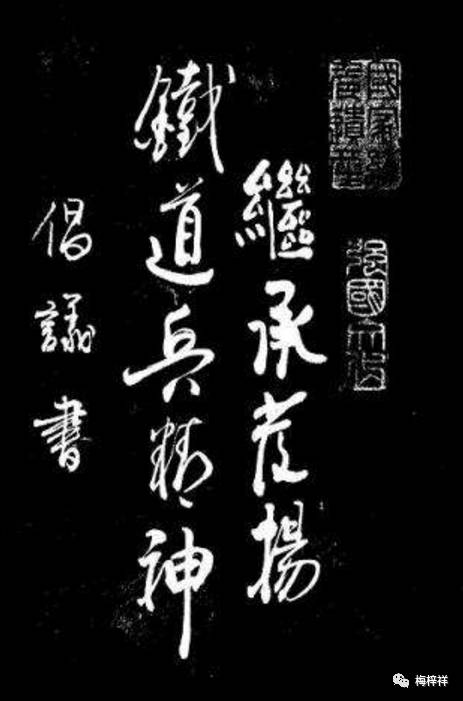 繼承发揚
鐵道兵精神
倡議書
梅梓祥